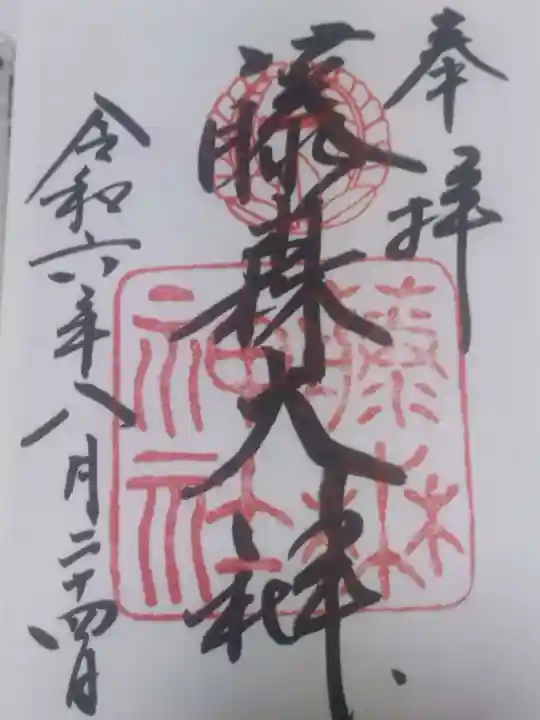 奉拝
藤森大神
藤森
神社
令和六年八月二十四日